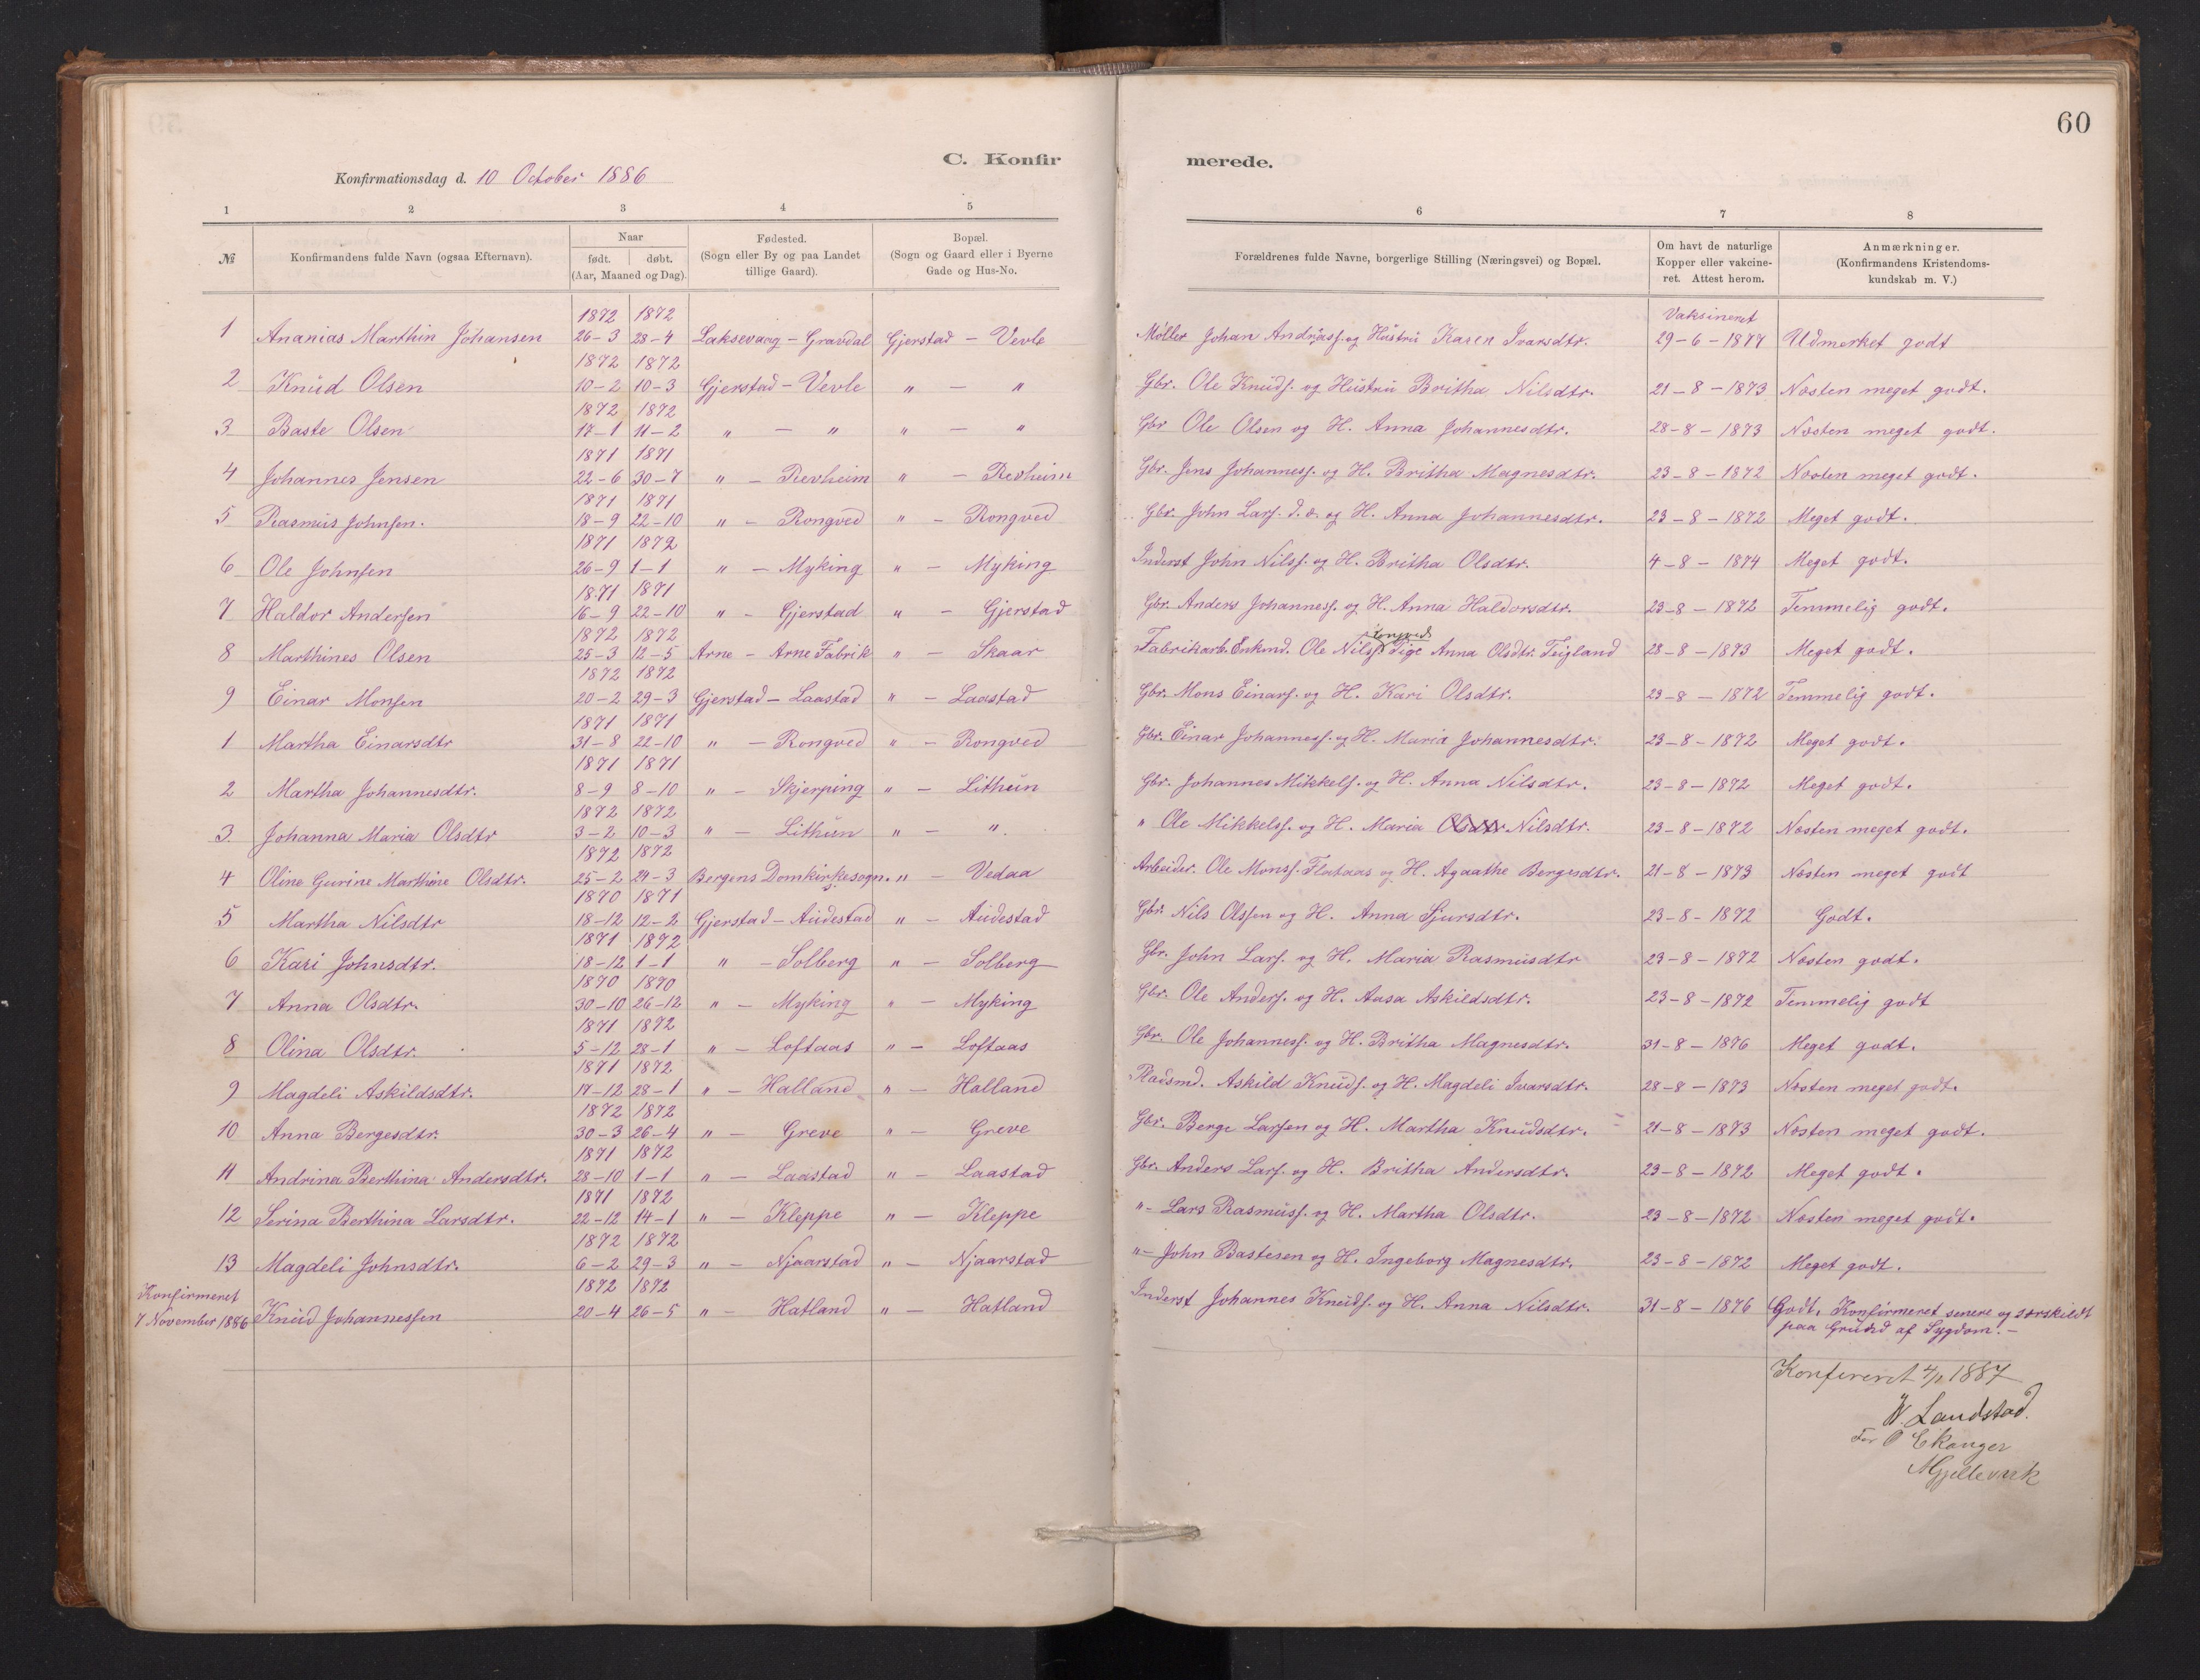 60
C. Konfir merede.
Konfirmationsdag d. 10 October 1886
1 2 3 4 5 6 7 8
№ Konfirmandens fulde Navn (ogsaa Efternavn). Naar født. døbt. (Aar, Maaned og Dag). Fødested. (Sogn eller By og paa Landet tillige Gaard). Bopæl. (Sogn og Gaard eller i Byerne Gade og Hus-No. Forældrenes fulde Navne, borgerlige Stilling (Næringsvei) og Bopæl. Om havt de naturlige Kopper eller vakcineret. Attest herom. Anmærkninger. (Konfirmandens Kristendomskundskab m. V.)
1872 1872 Vaksineret
1 Ananias Marthin Johansen 26-3 28-4 Laksevaag - Gravdal Gjerstad - Vevle Møller Johan Andreasf. og Hustru Karen Ivarsdtr. 29-6-1877 Udmerket godt
1872 1872
2 Knud Olsen 10-2 10-3 Gjerstad - Vevle " - " Gbr. Ole Knudf. og Hustru Britha Nilsdtr. 21-8-1873 Næsten meget godt.
1872 1872
3 Baste Olsen 17-1 11-2 " - " " - " Gbr Ole Olsen og H. Anna Johannesdtr. 28-8-1873 Næsten meget godt.
1871 1871
4 Johannes Jensen 22-6 30-7 " - Revheim " - Revheim Gbr. Jens Johannesf. og H. Britha Magnesdtr. 23-8-1872 Næsten meget godt.
1871 1871
5 Rasmus Johnsen. 18-9 22-10 " - Rongved " - Rongved Gbr. John Larf. d. æ. og H. Anna Johannesdtr. 23-8-1872 Meget godt.
1871 1872
6 Ole Johnsen 26-9 1-1 " - Myking " - Myking Inderst John Nilsf. og H. Britha Olsdtr. 4-8-1874 Meget godt.
1871 1871
7 Haldor Andersen 16-9 22-10 " - Gjerstad " - Gjerstad Gbr. Anders Johannesf. og H. Anna Haldorsdtr. 23-8-1872 Temmelig godt.
1872 1872
8 Marthines Olsen 25-3 12-5 Arne - Arne Fabrik " - Skaar Fabrikarb. Enkmd. Ole Nilsf. Pige Anna Olsdtr. Teigland 28-8-1873 Meget godt.
1872 1872
9 Einar Monsen 20-2 29-3 Gjerstad - Laastad " - Laastad Gbr. Mons Einarf. og H. Kari Olsdtr. 23-8-1872 Temmelig godt.
1871 1871
1 Martha Einarsdtr 31-8 22-10 " - Rongved " - Rongved Gbr. Einar Johannesf. og H. Maria Johannesdtr. 23-8-1872 Meget godt.
1871 1871
2 Martha Johannesdtr. 8-9 8-10 " - Skjerping " - Lithun Gbr. Johannes Mikkelf. og H. Anna Nilsdtr. 23-8-1872 Meget godt.
1872 1872
3 Johanna Maria Olsdtr 3-2 10-3 " - Lithun " - ". " Ole Mikkelsf. og H. Maria Olsdtr Nilsdtr. 23-8-1872 Næsten meget godt.
1872 1872
4 Oline Gurine Marthine Olsdtr. 25-2 24-3 Bergens Domkirkesogn. " - Vedaa Arbeider. Ole Monsf. Flataas og H. Agaathe Bergesdtr. 21-8-1873 Næsten meget godt
1870 1871
5 Martha Nilsdtr 18-12 12-2 Gjerstad - Audestad " - Audestad Gbr. Nils Olssen og H. Anna Sjursdtr. 23-8-1872 Godt.
1871 1872
6 Kari Johnsdtr. 18-12 1-1 " - Solberg " - Solberg Gbr. John Larf. og H. Maria Rasmusdtr 23-8-1872 Næsten godt.
1870 1870
7 Anna Olsdtr. 30-10 26-12 " - Myking " - Myking Gbr. Ole Anderf. og H. Aasa Askildsdtr. 23-8-1872 Temmelig godt
1871 1872
8 Olina Olsdtr. 5-12 28-1 " - Loftaas " - Loftaas Gbr. Ole Johannesf. og H. Britha Magnesdtr. 31-8-1876 Meget godt.
1871 1872
9 Magdeli Askildsdtr. 17-12 28-1 " - Halland " - Halland Pladsmd. Askild Knudf. og H. Magdeli Ivarsdtr. 28-8-1873 Næsten meget godt.
1872 1872
10 Anna Bergesdtr. 30-3 26-4 " - Greve " - Greve Gbr. Berge Larsen og H. Martha Knudsdtr. 21-8-1873 Næsten meget godt.
1871 1872
11 Andrina Berthina Andersdtr. 28-10 1-1 " - Laastad " - Laastad Gbr. Anders Larf. og H. Britha Andersdtr. 23-8-1872 Meget godt.
1871 1872
12 Serina Berthina Larsdtr. 22-12 14-1 " - Kleppe " - Kleppe "- Lars Rasmusf. og H. Martha Olsdtr. 23-8-1872 Næsten meget godt.
1872 1872
13 Magdeli Johnsdtr. 6-2 29-3 " - Njaarstad " - Njaarstad "- John Bastesen og H. Ingeborg Magnesdtr. 23-8-1872 Meget godt.
Konfirmeret 1872 1872
7 November 1886 Knud Johannessen 20-4 26-5 " - Hatland " - Hatland Inderst Johannes Knudf. og H. Anna Nilsdtr. 31-8-1876 Godt. Konfirmeret senere og særskildt
paa Grund af Sygdom. -
Konfereret 4/1 1887
W. Landstad.
for O Ekanger
Mjeldevik